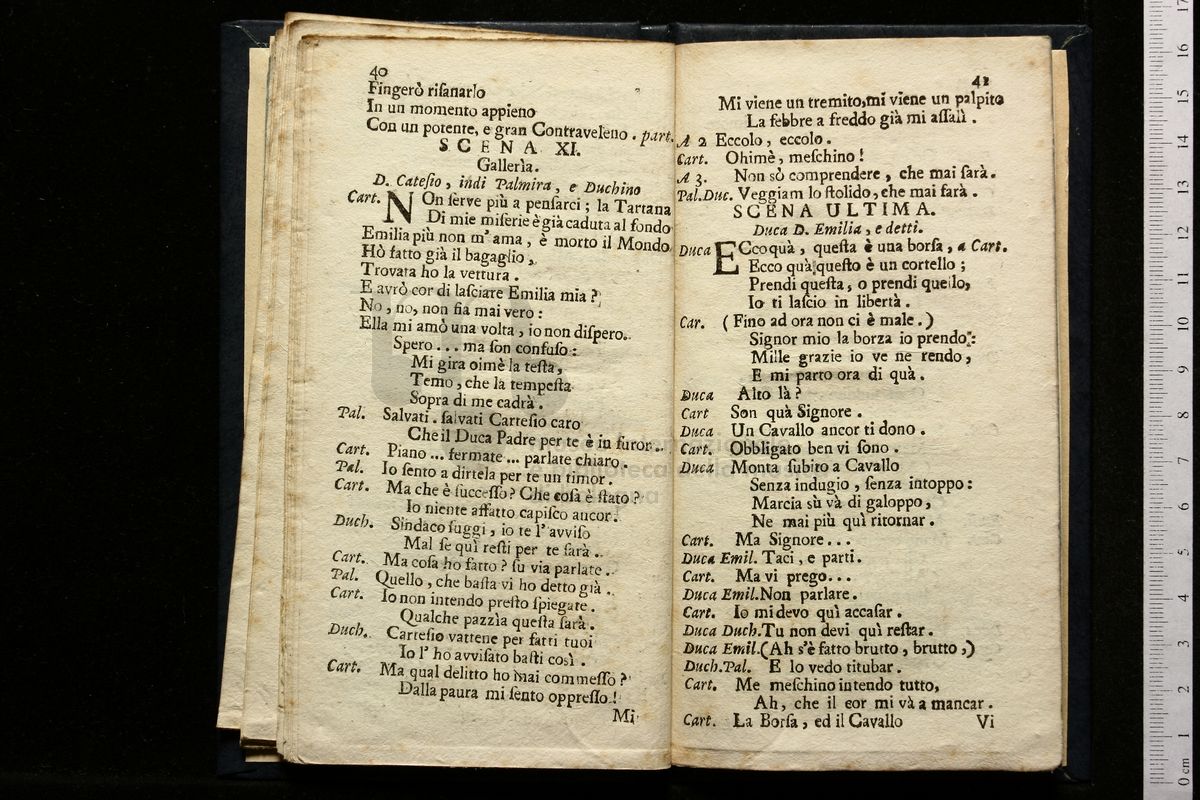 40
Fingerò riſanarlo
In un momento appieno
Con un potente, e gran Contraveleno . part.
SCENA XI.
Gallerìa.
D. Cateſio , indi Palmira, e Duchino
Cart. NOn ſerve più a penſarci ; la Tartana
Di mie miſerie è già caduta al fondo
Emilia più non m' ama , è morto il Mondo
Hò fatto già il bagaglio ,
Trovata ho la vettura .
E avrò cor di laſciare Emilia mia ?
No , no, non fia mai vero :
Ella mi amò una volta , io non diſpero.
Spero ... ma ſon confuſo :
Mi gira oimè la teſta,
Temo , che la tempeſta
Sopra di me cadrà .
Pal. Salvati . ſalvati Carteſio caro
Che il Duca Padre per te è in furor..
Cart. Piano ... fermate ... parlate chiaro .
Pal. Io ſento a dirtela per te un timor.
Cart. Ma che è ſucceſſo? Che coſa è ſtato ?
Io niente affatto capiſco ancor.
Duch. Sindaco fuggi , io te l' avviſo
Mal ſe quì reſti per te ſarà .
Cart. Ma coſa ho fatto ? ſu via parlate .
Pal. Quello , che baſta vi ho detto già .
Cart. Io non intendo preſto ſpiegate .
Qualche pazzìa queſta ſarà .
Duch. Carteſio vattene per fatti tuoi
Io l' ho avviſato baſti così .
Cart. Ma qual delitto ho mai commeſſo ?
Dalla paura mi ſento oppreſſo !
Mi
41
Mi viene un tremito,mi viene un palpito
La febbre a freddo già mi aſſalì .
A 2 Eccolo , eccolo .
Cart. Ohimè , meſchino !
A 3. Non sò comprendere , che mai ſarà.
Pal.Duc. Veggiam lo ſtolido, che mai farà .
SCENA ULTIMA.
Duca D. Emilia , e detti.
Duca ECco quà , queſta è una borſa, a Cart.
Ecco quà queſto è un cortello ;
Prendi queſta , o prendi quello,
Io ti laſcio in libertà .
Car. ( Fino ad ora non ci è male . )
Signor mio la borza io prendo :
Mille grazie io ve ne rendo ,
E mi parto ora di quà .
Duca Alto là ?
Cart Son quà Signore .
Duca Un Cavallo ancor ti dono .
Cart. Obbligato ben vi ſono .
Duca Monta ſubito a Cavallo
Senza indugio , ſenza intoppo :
Marcia sù và di galoppo ,
Ne mai più quì ritornar .
Cart. Ma Signore...
Duca Emil. Taci , e parti.
Cart. Ma vi prego...
Duca Emil.Non parlare .
Cart. Io mi devo quì accaſar .
Duca Duch.Tu non devi quì reſtar .
Duca Emil.(Ah s'è fatto brutto , brutto ,)
Duch.Pal. E lo vedo titubar .
Cart. Me meſchino intendo tutto,
Ah , che il cor mi và a mancar .
Cart. La Borſa , ed il Cavallo
Vi